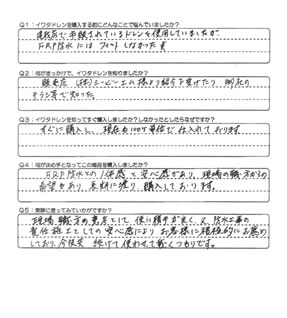 Q1:イワタドレンを購入する前にどんなことで悩んでいましたか?
建材店で市販されているドレンを使用していましたが
FRP防水にはフィットしなかった
Q2:何がきっかけで、イワタドレンを知りましたか?
販売店 より紹介を受けたり
チラシ等で知った。
Q3:イワタドレンを知ってすぐ購入しましたか?しなかったとしたらなぜですか?
すぐに購入し、現在も100ケ単位で仕入れております
Q4:何が決め手となってこの商品を購入しましたか?
FRP防水との一体感と安心感があり、現場の職方からの
希望もあり、長期に渡り、購入しております。
Q5:実際に使ってみていかがですか?
現場職方の意見として、使い勝手が良く、又、防水工事の
責任施工としての安心感によりお客様に積極的にお薦め
しており、今後共続けて使わせて頂くつもりです。